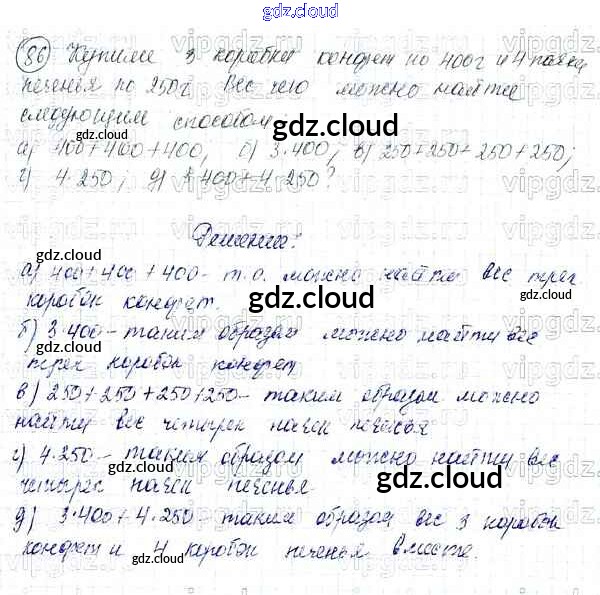 gdz.cloud
86 Купили 3 коробки конфет по 400г и 4 пачки
печенья по 250г. Вес чего можно найти
следующим способом
gdz.cloud
а) 400+400+400; б) 3·400; в) 250+250+250+250;
г) 4·250; д) 3·400+4·250?
gdz.cloud
Решение:
gdz.cloud
gdz.cloud
а) 400+400+400 - т.о. можно найти вес трех
коробок конфет.
gdz.cloud
б) 3·400 - таким образом можно найти вес
трех коробок конфет
gdz.cloud
gdz.cloud
в) 250+250+250+250 - таким образом можно
найти вес четырех пачек печенья
г) 4·250 - таким образом можно найти вес
четырех пачек печенья
gdz.cloud
gdz.cloud
д) 3·400+4·250 - таким образом вес 3 коробок
конфет и 4 коробок печенья вместе.
gdz.cloud